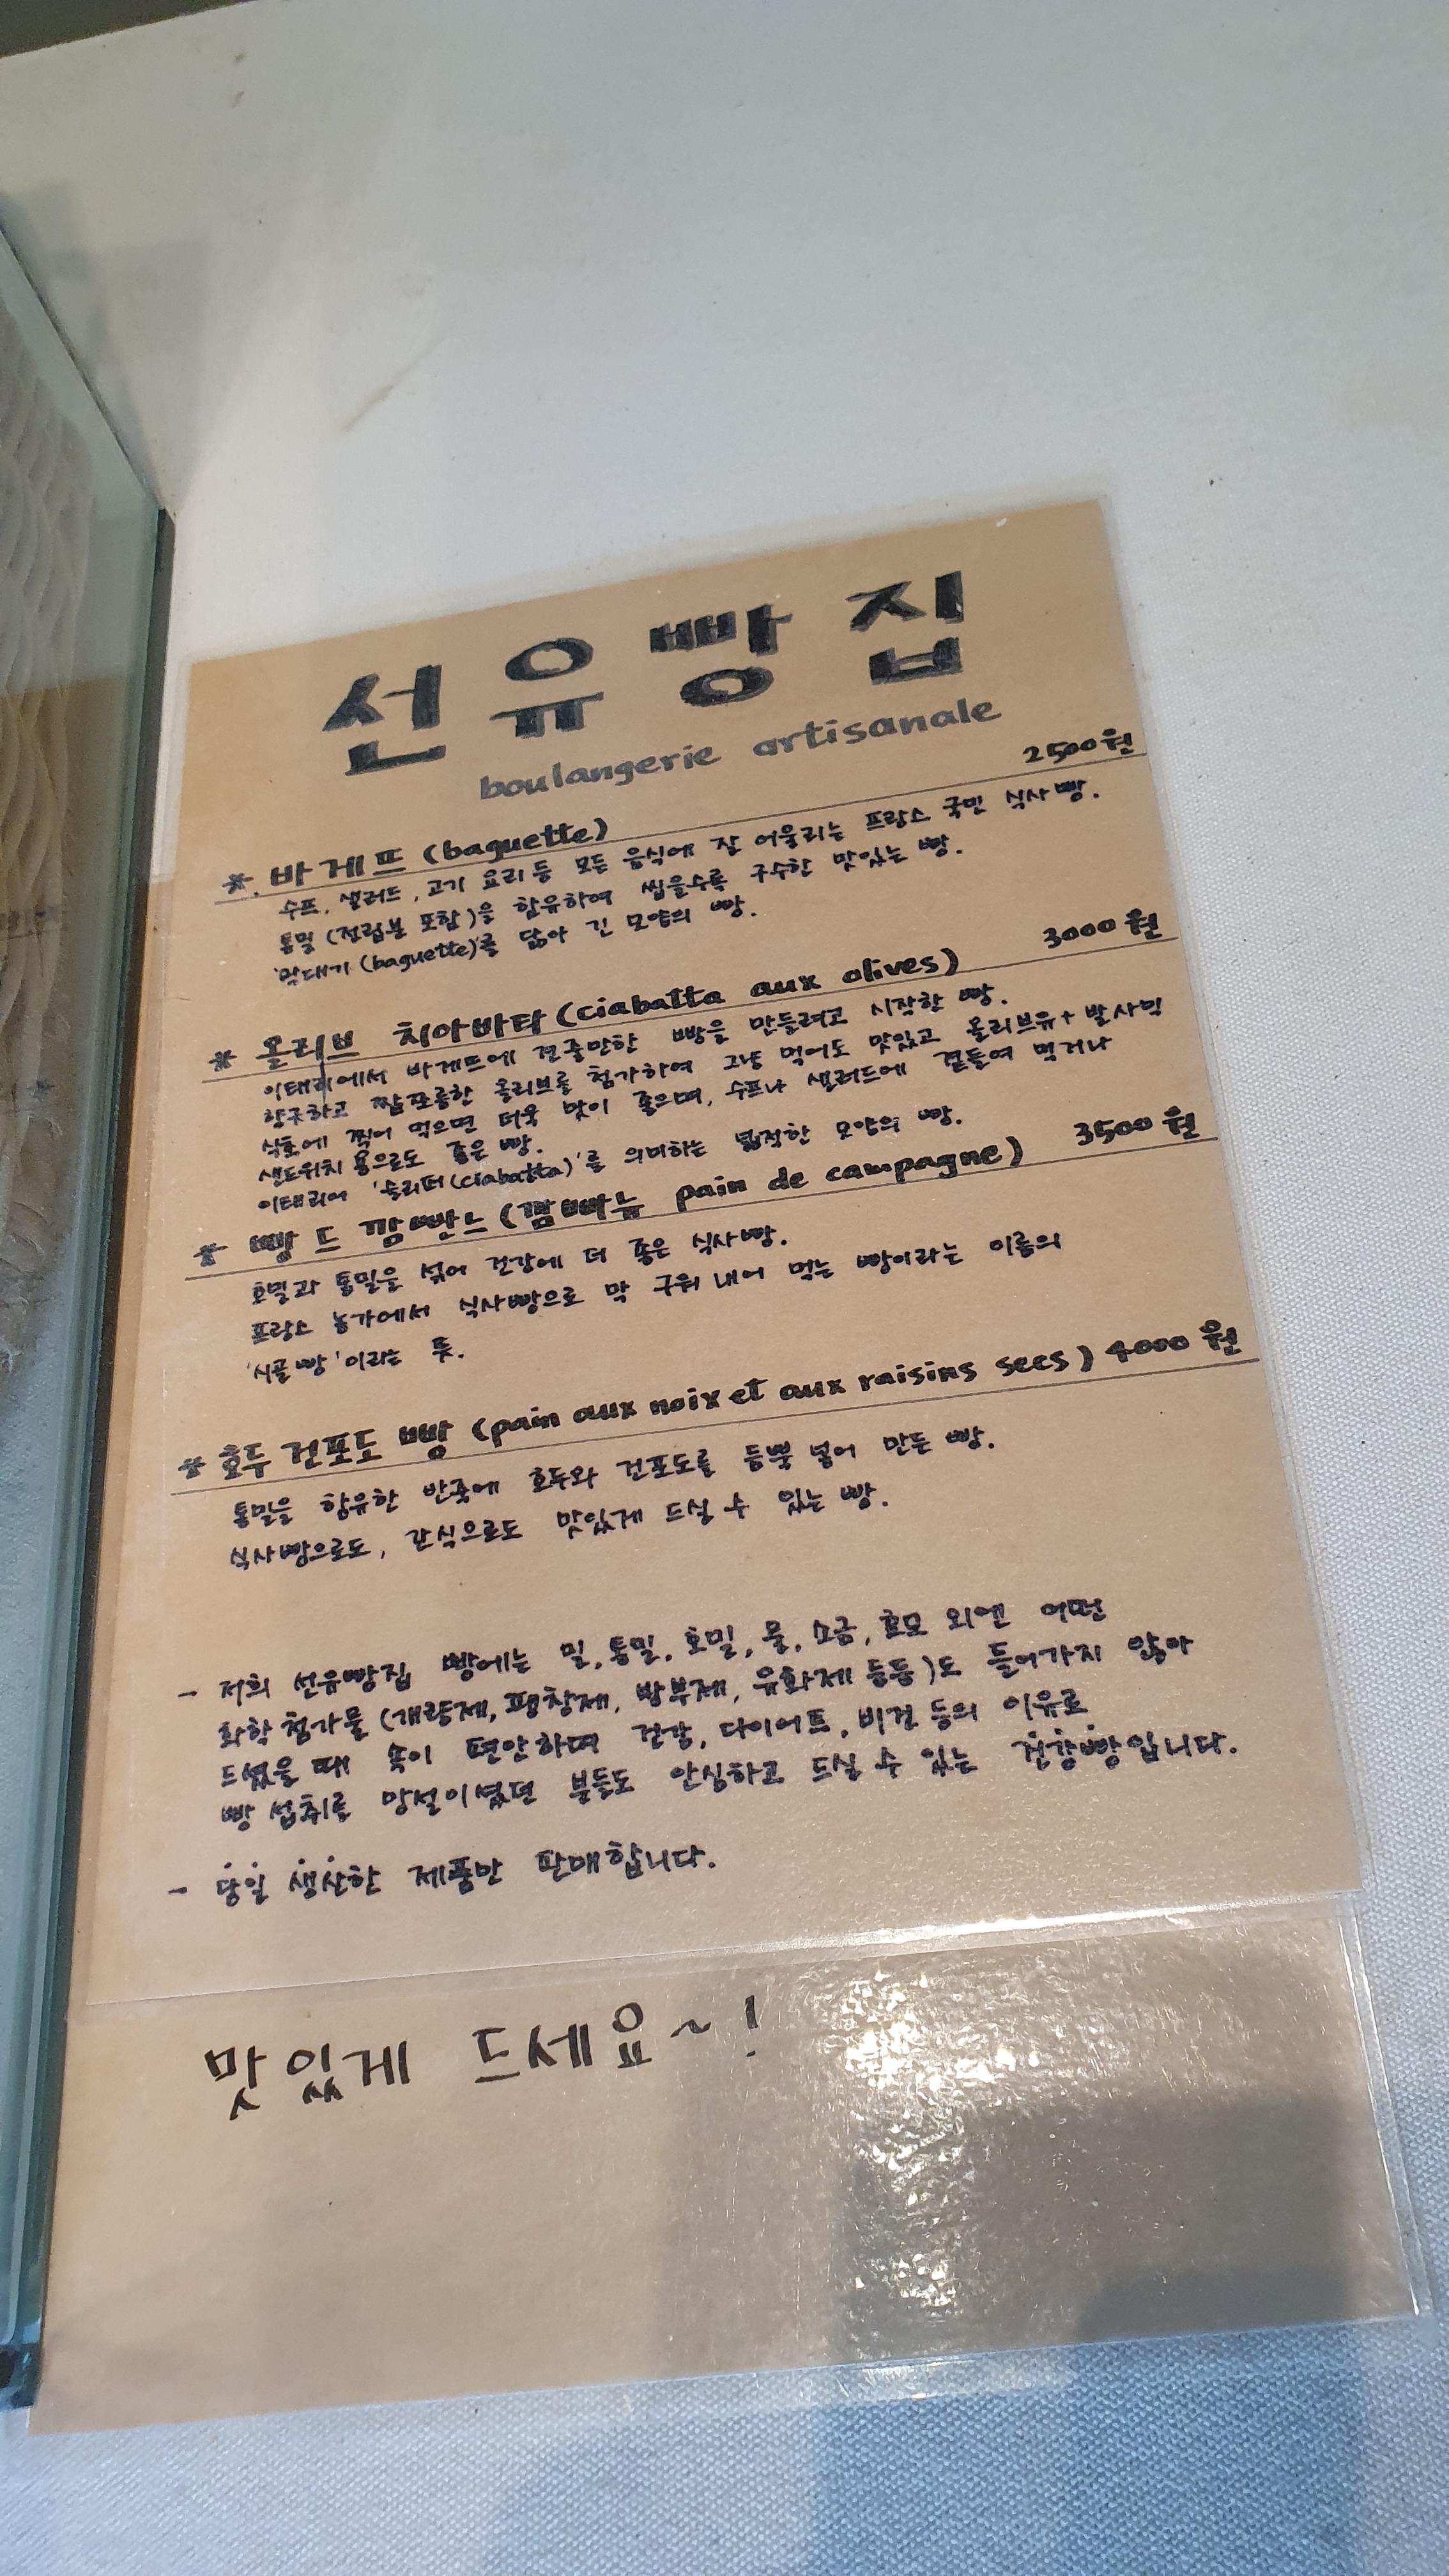 선유빵집
boulangerie artisanale
*. 바게뜨 (baguette) 2500원
수프, 샐러드, 고기 요리 등 모든 음식에 잘 어울리는 프랑스 국민 식사빵.
통밀 (전립분 포함)을 함유하여 씹을수록 구수한 맛있는 빵.
'막대기 (baguette)'를 닮아 긴 모양의 빵.
* 올리브 치아바타 (ciabatta aux olives) 3000원
이태리에서 바게뜨에 견줄만한 빵을 만들려고 시작한 빵.
향긋하고 짭쪼롬한 올리브를 첨가하여 그냥 먹어도 맛있고 올리브유+발사믹
식초에 찍어 먹으면 더욱 맛이 좋으며, 수프나 샐러드에 곁들여 먹거나
샌드위치용으로도 좋은 빵.
이태리어 '슬리퍼(ciabatta)'를 의미하는 넓적한 모양의 빵.
* 빵 드 깜빤느 (깜빠뉴 pain de campagne) 3500원
호밀과 통밀을 섞어 건강에 더 좋은 식사빵.
프랑스 농가에서 식사빵으로 막 구워 내어 먹는 빵이라는 이름의
'시골빵'이라는 뜻.
* 호두 건포도 빵 (pain aux noix et aux raisins secs) 4000원
통밀을 함유한 반죽에 호두와 건포도를 듬뿍 넣어 만든 빵.
식사빵으로도, 간식으로도 맛있게 드실 수 있는 빵.
- 저희 선유빵집 빵에는 밀, 통밀, 호밀, 물, 소금, 효모 외엔 어떤
화학첨가물 (개량제, 팽창제, 방부제, 유화제 등등)도 들어가지 않아
드셨을 때 속이 편안하며 건강, 다이어트, 비건 등의 이유로
빵 섭취를 망설이셨던 분들도 안심하고 드실 수 있는 건강빵입니다.
- 당일 생산한 제품만 판매합니다.
맛있게 드세요~!